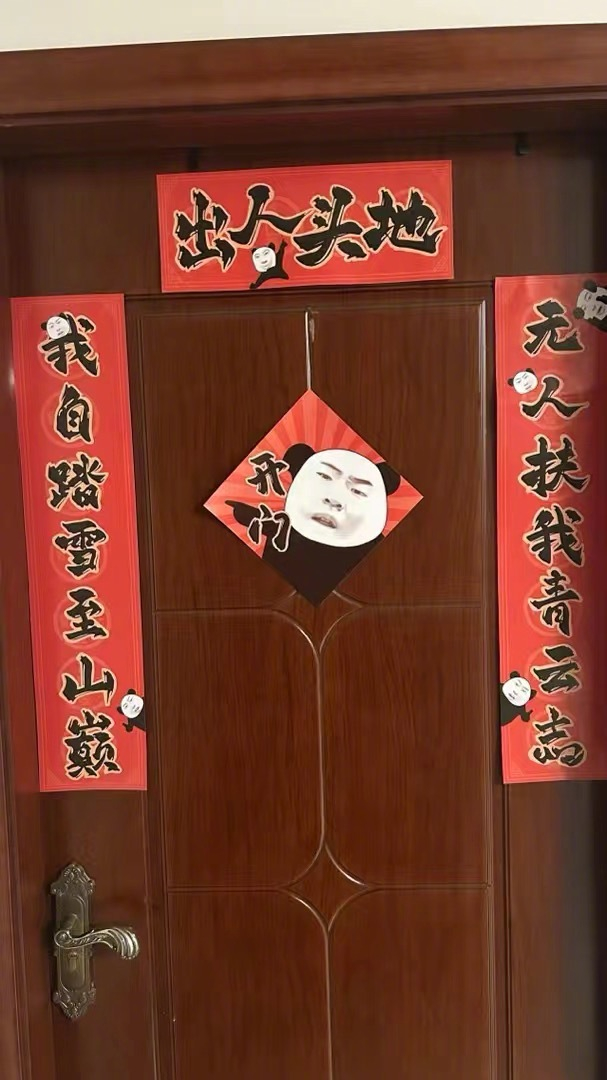 出人头地
无人扶我青云志
我自踏雪至山巅
开门